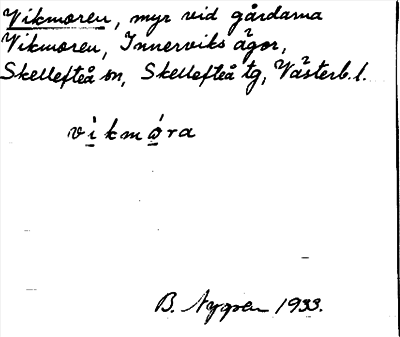 Vikmoren, myr vid gårdarna
Vikmoren, Innerviks ägor,
Skellefteå sn, Skellefteå tg, Västerb. l.
vìkmó̱ra
B. Nygren 1933.